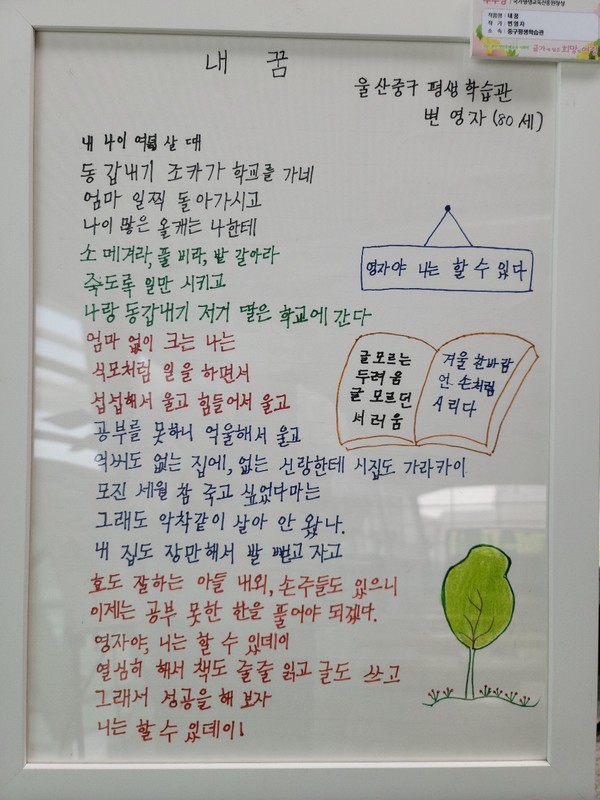 국가평생교육진흥원장상
작품명 : 내꿈
이 름 : 변영자
소 속 : 중구평생학습관
내 꿈
울산중구 평생학습관
변 영자 (80세)
내 나이 여덟 살 때
동갑내기 조카가 학교를 가네
엄마 일찍 돌아가시고
나이 많은 올캐는 나한테
소 메겨라, 풀 비라, 밭 갈아라
죽도록 일만 시키고
나랑 동갑내기 저거 딸은 학교에 간다
엄마 없이 크는 나는
식모처럼 일을 하면서
섭섭해서 울고 힘들어서 울고
공부를 못하니 억울해서 울고
억써도 없는 집에, 없는 신랑한테 시집도 가라카이
모진 세월 참 죽고 싶었다마는
그래도 악착같이 살아 안 왔나.
내 집도 장만해서 발 뻗고 자고
효도 잘하는 아들 내외, 손주들도 있으니
이제는 공부 못한 한을 풀어야 되겠다.
영자야, 니는 할 수 있데이
열심히 해서 책도 줄줄 읽고 글도 쓰고
그래서 성공을 해 보자
니는 할 수 있데이!
영자야 나는 할 수 있다
글모르는
두려움
글 모르던
서러움
겨울 찬바람
언 손처럼
시리다